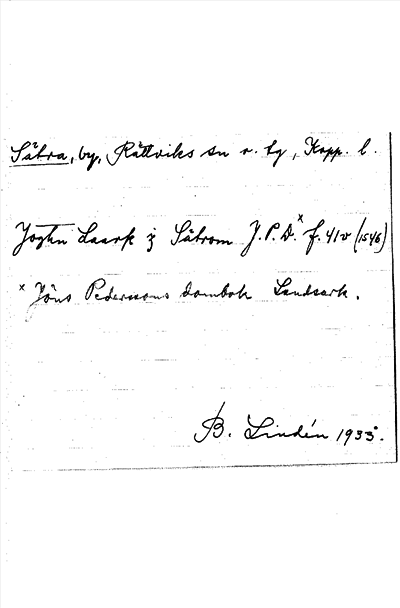 Sätra, by, Rättviks sn o. tg, Kopp. l.
Joghn Laark j Sätrom J.P.D.ˣ f. 41v (1546)
ˣ Jöns Pederssons dombok Landsark.
B. Lindén 1933.